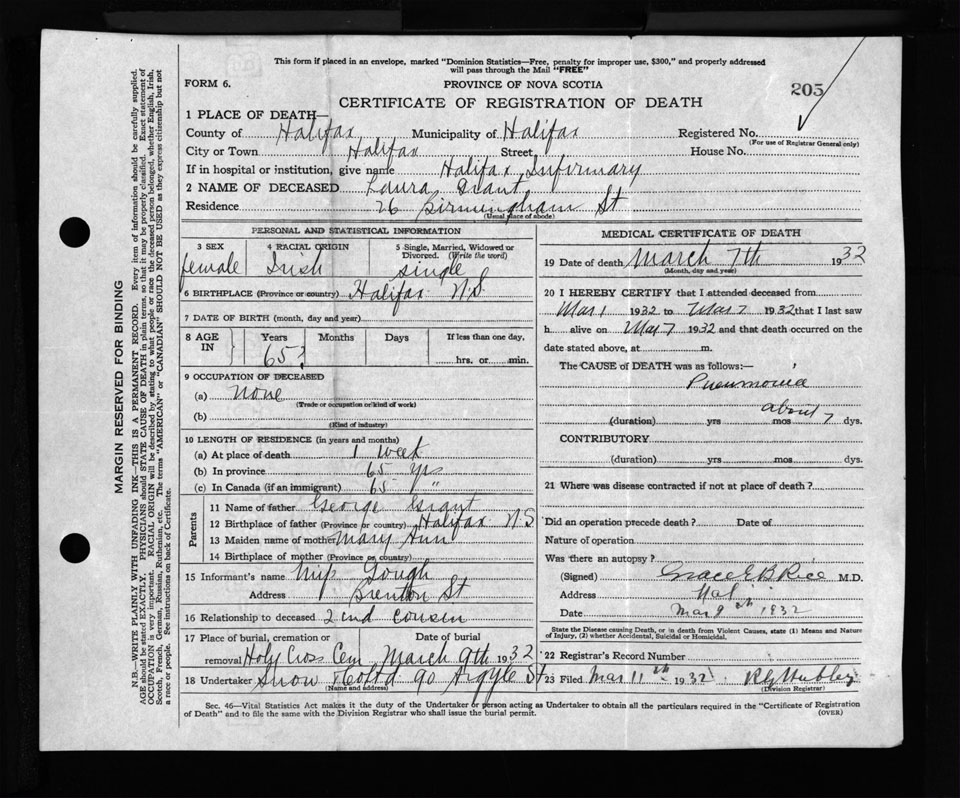 This form if placed in an envelope, marked "Dominion Statistics—Free, penalty for improper use, $300," and properly addressed
will pass through the Mail "FREE"
FORM 6.
PROVINCE OF NOVA SCOTIA
205
CERTIFICATE OF REGISTRATION OF DEATH
1 PLACE OF DEATH—
County of Halifax Municipality of Halifax Registered No.
(For use of Registrar General only)
City or Town Halifax Street House No.
If in hospital or institution, give name Halifax Infirmary
2 NAME OF DECEASED Laura Grant
Residence 26 Birmingham St
(Usual place of abode)
PERSONAL AND STATISTICAL INFORMATION
3 SEX 4 RACIAL ORIGIN 5 Single, Married, Widowed or
Divorced. (Write the word)
female Irish single
6 BIRTHPLACE (Province or country) Halifax N.S
7 DATE OF BIRTH (month, day and year)
8 AGE IN Years Months Days If less than one day,
65? hrs. or min.
9 OCCUPATION OF DECEASED
(a) None
(Trade or occupation or kind of work)
(b)
(Kind of industry)
10 LENGTH OF RESIDENCE (in years and months)
(a) At place of death 1 week
(b) In province 65 yrs
(c) In Canada (if an immigrant) 65 "
Parents
11 Name of father George Grant
12 Birthplace of father (Province or country) Halifax N.S
13 Maiden name of mother Mary Ann
14 Birthplace of mother (Province or country)
15 Informant's name Gough
Address Brenton St
16 Relationship to deceased 2nd cousin
17 Place of burial, cremation or Date of burial
removal Holy Cross Cem March 9th 1932
18 Undertaker Snow & Co Ltd 90 Argyle St
(Name and address)
MEDICAL CERTIFICATE OF DEATH
19 Date of death March 7th 1932
(Month, day and year)
20 I HEREBY CERTIFY that I attended deceased from
Mar 1 1932 to Mar 7 1932 that I last saw
h alive on Mar 7 1932 and that death occurred on the
date stated above, at m.
The CAUSE of DEATH was as follows:—
Pneumonia
(duration) yrs mos about 7 dys.
CONTRIBUTORY
(duration) yrs mos dys.
21 Where was disease contracted if not at place of death?
Did an operation precede death? Date of
Nature of operation
Was there an autopsy?
(Signed) Grace E B Rice M.D.
Address Hal
Date Mar 9th 1932
State the Disease causing Death, or in death from Violent Causes, state (1) Means and Nature
of Injury, (2) whether Accidental, Suicidal or Homicidal.
22 Registrar's Record Number
23 Filed Mar 11th 1932
(Division Registrar)
Sec. 46—Vital Statistics Act makes it the duty of the Undertaker or person acting as Undertaker to obtain all the particulars required in the "Certificate of Registration
of Death" and to file the same with the Division Registrar who shall issue the burial permit.
(OVER)
MARGIN RESERVED FOR BINDING
N.B.—WRITE PLAINLY WITH UNFADING INK—THIS IS A PERMANENT RECORD. Every item of information should be carefully supplied.
AGE should be stated EXACTLY. PHYSICIANS should STATE CAUSE OF DEATH in plain terms, so that it may be properly classified. Exact statement of
OCCUPATION is very important. RACIAL ORIGIN will be described by stating to what people or race the deceased person belonged, whether English, Irish,
Scotch, French, German, Russian, Ruthenian, etc. The terms "AMERICAN" or "CANADIAN" SHOULD NOT BE USED as they express citizenship but not
a race or people. See instructions on back of Certificate.